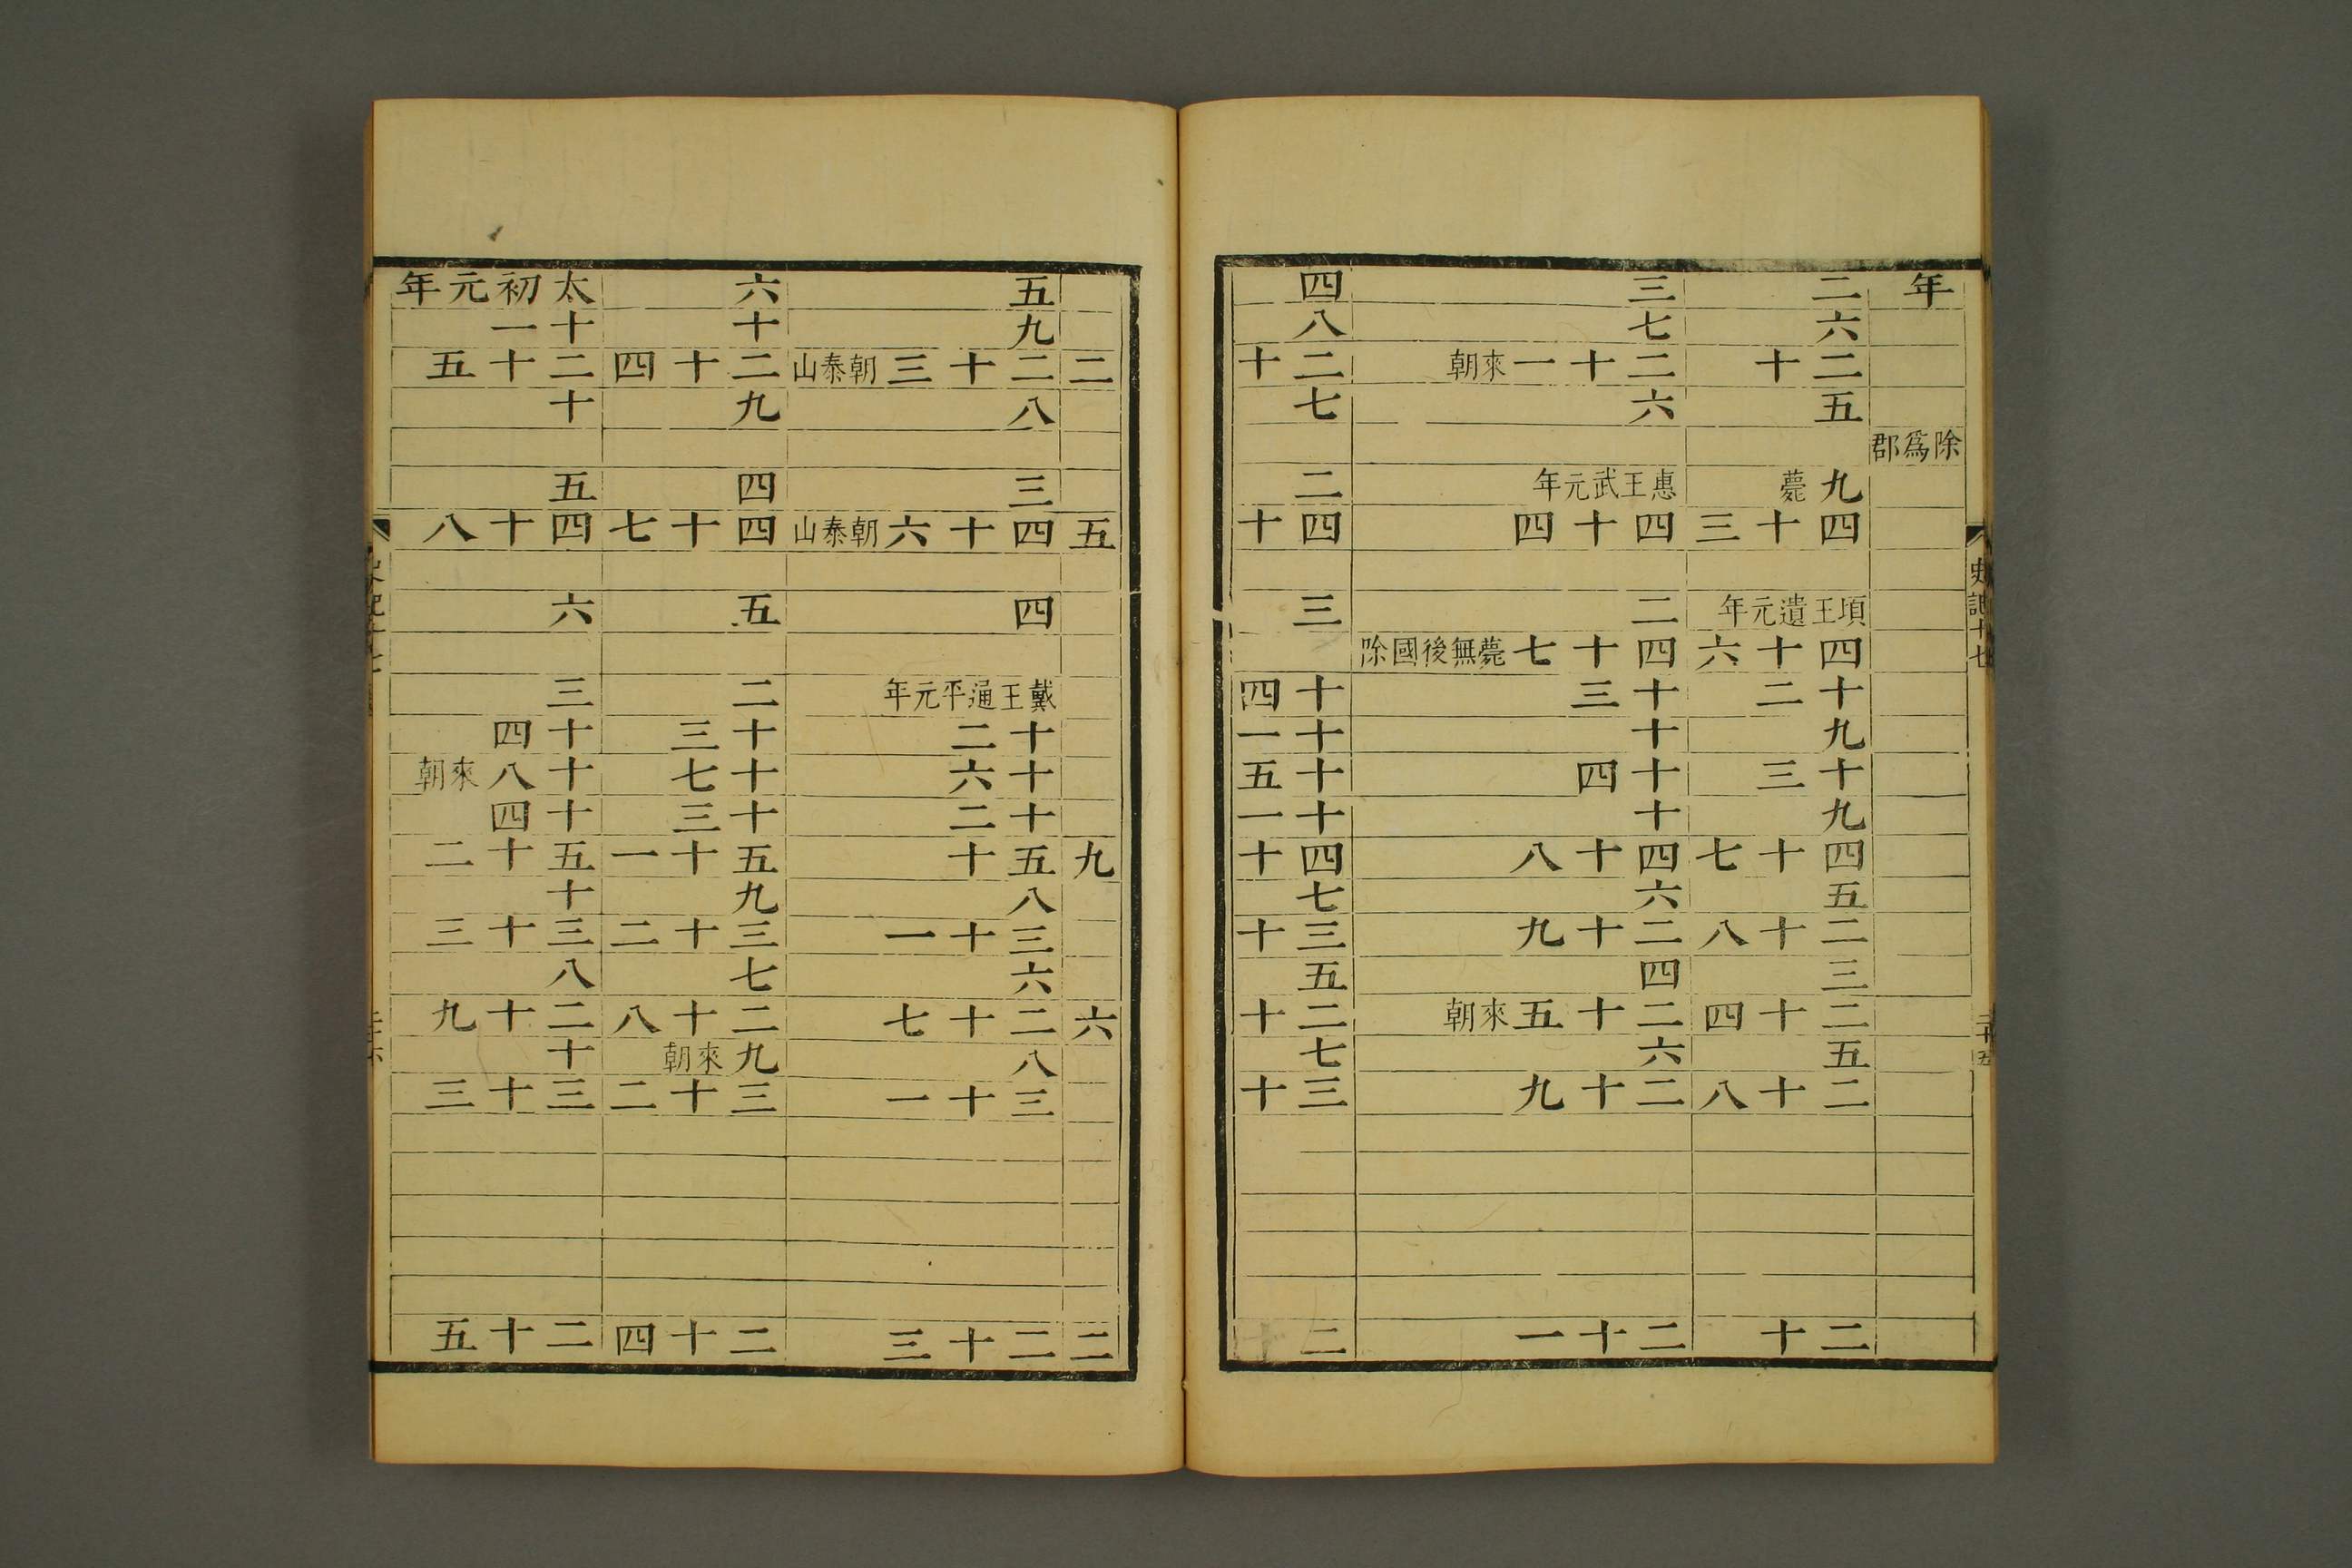 史記十七
三十五
年 二 三 四
六 七 八
二十 二十一來朝 二十
五 六 七
除爲郡
九薨 惠王武元年 二
四十三 四十四 四十
項王遺元年 二 三
四十六 四十七薨無後國除
十二 十三 十四
九 十 十一
十三 十四 十五
九 十 十一
四十七 四十八 四十
五 六 七
二十八 二十九 三十
三 四 五
二十四 二十五來朝 二十
五 六 七
二十八 二十九 三十
二十 二十一 二十
五 六 太初元年
九 十 十一
二 二十三朝泰山 二十四 二十五
八 九 十
三 四 五
五 四十六朝泰山 四十七 四十八
四 五 六
戴王通平元年 二 三
十二 十三 十四
十六 十七 十八來朝
十二 十三 十四
九 五十 五十一 五十二
八 九 十
三十一 三十二 三十三
六 七 八
六 二十七 二十八 二十九
八 九來朝 十
三十一 三十二 三十三
二 二十三 二十四 二十五